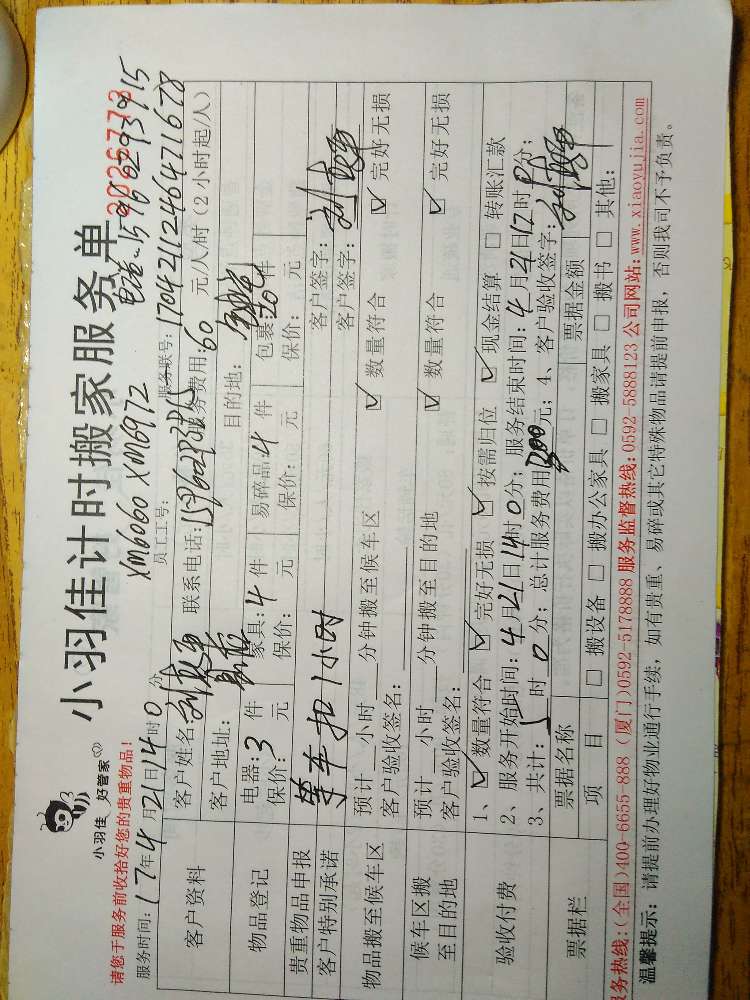 小羽佳 好管家
小羽佳计时搬家服务单
2026773
请您于服务前收拾好您的贵重物品!
XM6060 XM6972
电话:15960293915
服务时间:17年4月21日14时0分
员工工号:
服务联号:170421124646471678
客户资料
客户姓名:
联系电话:15960293915
服务费用:60元/人/时(2小时起/人)
客户地址:
目的地:
物品登记
电器:3件 家具:4件 易碎品:4件 包裹:20件
保价: 元 保价: 元 保价: 元 保价: 元
贵重物品申报
客户签字:
客户特别承诺
等车扣1小时
客户签字:
物品搬至候车区
预计 小时 分钟搬至候车区 ☑数量符合 ☑完好无损
客户验收签名:
候车区搬至目的地
预计 小时 分钟搬至目的地 ☑数量符合 ☑完好无损
客户验收签名:
验收付费
1、☑数量符合 ☑完好无损 ☑按需归位 ☑现金结算 □转账汇款
2、服务开始时间:4月21日14时0分;服务结束时间:4月21日17时0分;
3、共计: 时0分;总计服务费用300元;4、客户验收签字:
票据栏
票据名称 票据金额
项目 □搬设备 □搬办公家具 □搬家具 □搬书 □其他:
服务热线:(全国)400-6655-888 (厦门)0592-5178888 服务监督热线:0592-5888123 公司网站:www.xiaoyujia.com
温馨提示:请提前办理好物业通行手续,如有贵重、易碎或其它特殊物品请提前申报,否则我司不予负责。